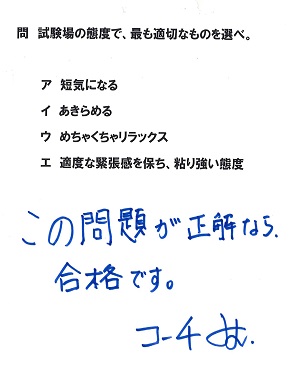 問 試験場の態度で、最も適切なものを選べ。
ア 短気になる
イ あきらめる
ウ めちゃくちゃリラックス
エ 適度な緊張感を保ち、粘り強い態度
この問題が正解なら、
合格です。
コーチ